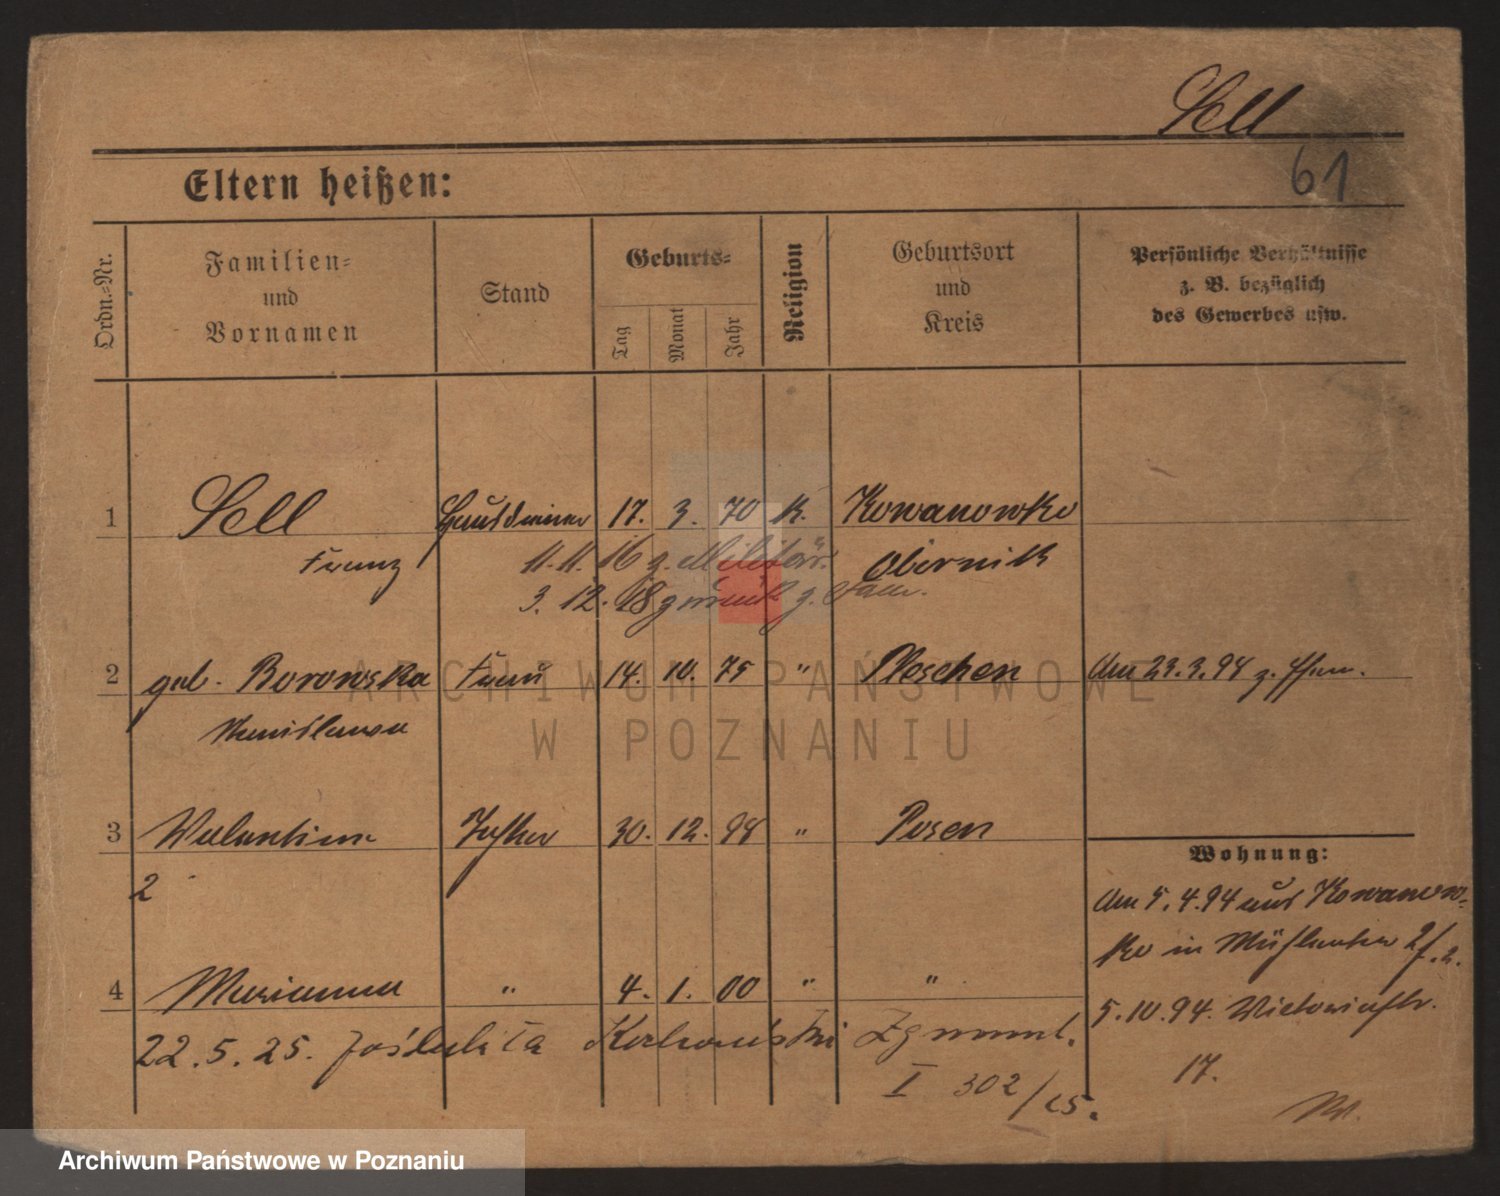 Sell
61
Eltern heißen:
Ordn.-Nr.
Familien-
und
Vornamen
Stand
Geburts-
Tag
Monat
Jahr
Religion
Geburtsort
und
Kreis
Persönliche Verhältnisse
z. B. bezüglich
des Gewerbes usw.
1 Sell Hausdiener 17. 3. 70 K. Kowanowko
Franz 11.11.16 z. Militär. Obernik
3. 12. 18 zurück z. Fam.
2 geb. Borowska Frau 14. 10. 75 " Pleschen Am 23.3.98 z. Ehem.
Stanislawa
3 Valentine Tochter 30. 12. 98 " Posen
2
4 Marianna " 4. 1. 00 " "
22. 5. 25. zaślubiła Zygmunt.
I 302/25.
Wohnung:
Am 5.4.94 aus Kowanow-
ko in
5.10.94. Victoriastr.
17.
ARCHIWUM PAŃSTWOWE
W POZNANIU
Archiwum Państwowe w Poznaniu